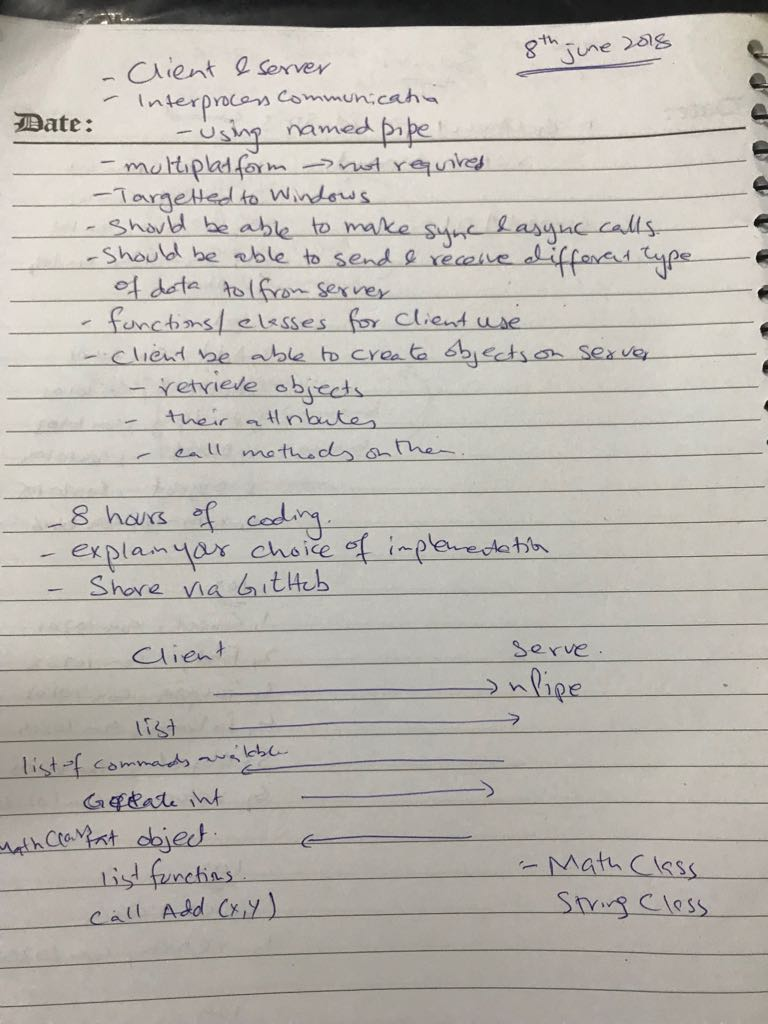 8th june 2018
- Client & server
- Interprocess Communicatin
Date:
- using named pipe
- multiplatform → not required
- Targetted to Windows
- Should be able to make sync & async calls.
- Should be able to send & receive different type
of data to/from server
- functions/classes for client use
- client be able to create objects on server
- retrieve objects
- their attributes
- call methods on them.
- 8 hours of coding.
- explain your choice of implementation
- Share via GitHub
Client serve.
→ nPipe
list →
list of commads available ←
Create int →
MathClass object. ←
list functins.
- Math Class
Call Add (x,y)
String Class